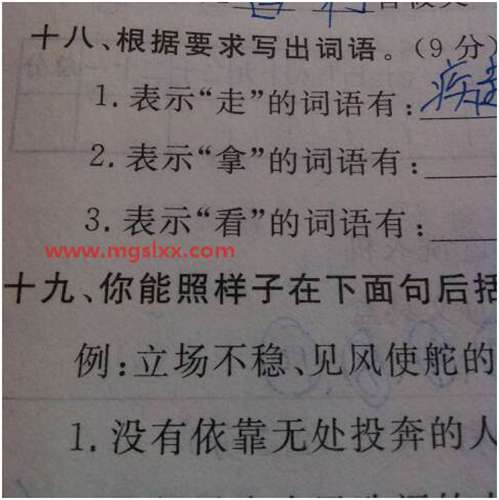 十八、根据要求写出词语。(9分)
1.表示“走”的词语有:疾走
2.表示“拿”的词语有:
3.表示“看”的词语有:
www.mgslxx.com
十九、你能照样子在下面句后括
例:立场不稳、见风使舵的
1.没有依靠无处投奔的人